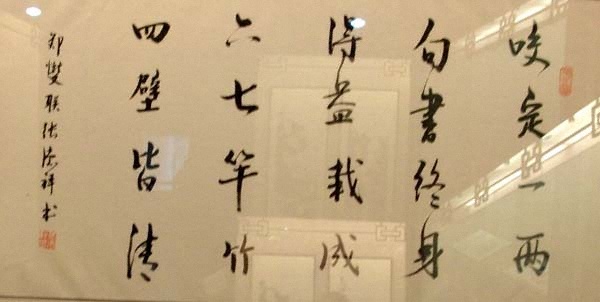 咬定一两
句書终身
得益栽成
六七竿竹
四壁皆清
郑燮联张祥书